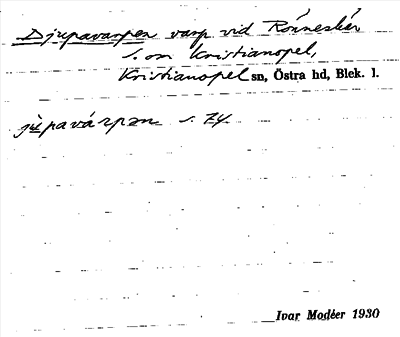 Djupavarpen varp vid Rönneskär
S. om Kristianopel,
Kristianopel sn, Östra hd, Blek. l.
jùpavárpən s. 74.
Ivar Modéer 1930